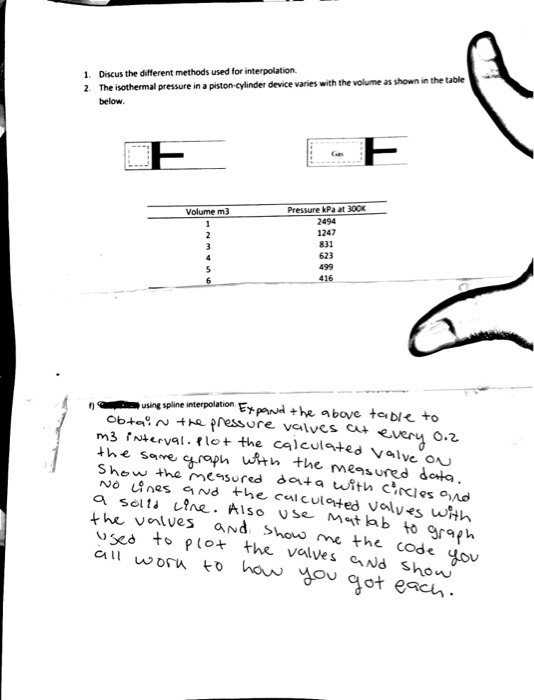 1. Discus the different methods used for interpolation.
2. The isothermal pressure in a piston-cylinder device varies with the volume as shown in the table
below.
Gas
Volume m3 Pressure kPa at 300K
1 2494
2 1247
3 831
4 623
5 499
6 416
f) using spline interpolation. Expand the above table to
obtain the pressure valves at every 0.2
m3 interval. Plot the calculated valve on
the same graph with the measured data.
Show the measured data with circles and
no lines and the calculated valves with
a solid line. Also use Matlab to graph
the values and show me the code you
used to plot the values and show
all work to how you got each.